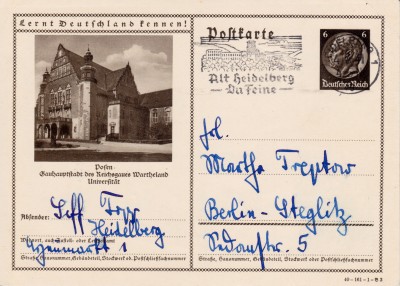 Lernt Deutschland kennen!
Posen
Gauhauptstadt des Reichsgaues Wartheland
Universität
Absender:
Heidelberg
Wohnort, auch Zustell- oder Leitpostamt
Straße, Hausnummer, Gebäudeteil, Stockwerk od. Postschließfachnummer
Postkarte
Alt Heidelberg
Du feine
6 6
Deutsches Reich
Frl.
Martha Treptow
Berlin-Steglitz
Sedanstr. 5
Straße, Hausnummer, Gebäudeteil, Stockwerk od. Postschließfachnummer